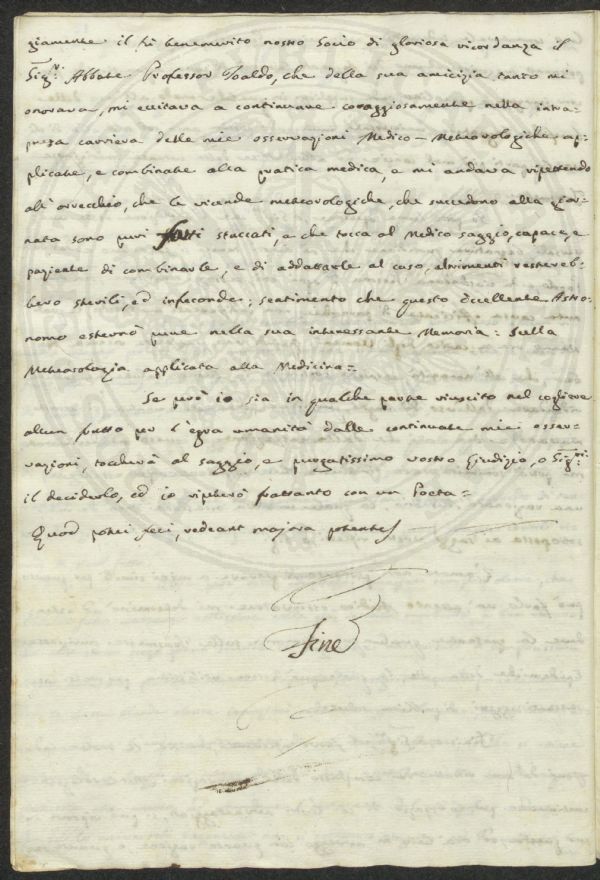 giamente il fu benemerito nostro Socio di gloriosa ricordanza il
Sig.r Abbate Professor Toaldo, che della sua amicizia tanto mi
onorava, mi eccitava a continuare coraggiosamente nella intra-
presa carriera delle mie osservazioni Medico-Meteorologiche, ap-
plicate, e combinate alla pratica medica, e mi andava ripettendo
all'orrecchio, che le vicende meteorologiche, che succedono alla gior-
nata sono puri fatti staccati, e che tocca al Medico saggio, capace, e
paziente di combinarle, e di addattarle al caso, altrimenti restereb-
bero sterili, ed infeconde; sentimento che questo Eccellente Astro-
nomo esternò pure nella sua interessante Memoria: Sulla
Meteorologia applicata alla Medicina:-
Se però io sia in qualche parte riuscito nel cogliere
alcun frutto per l'egra umanità dalle continuate mie osser-
vazioni, toccherà al saggio, e purgatissimo vostro Giudizio, o Sig.ri
il deciderlo, ed io ripeterò frattanto con un Poeta=
Quod potui feci, vedeant majora potentes
Fine